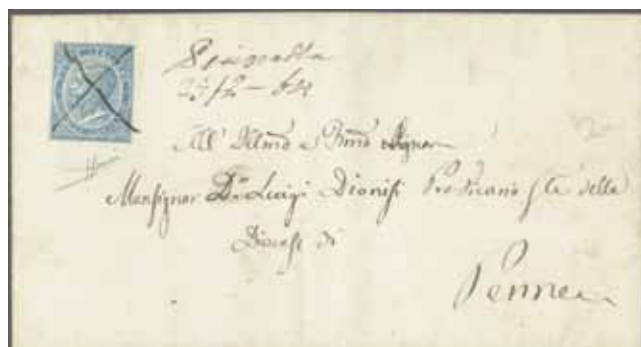 27/2 - 64
All' Illmo e Rmo Signor
Monsignor Dn Luigi Dionisi Pro Vicario Gle della
Diocesi di
Penne